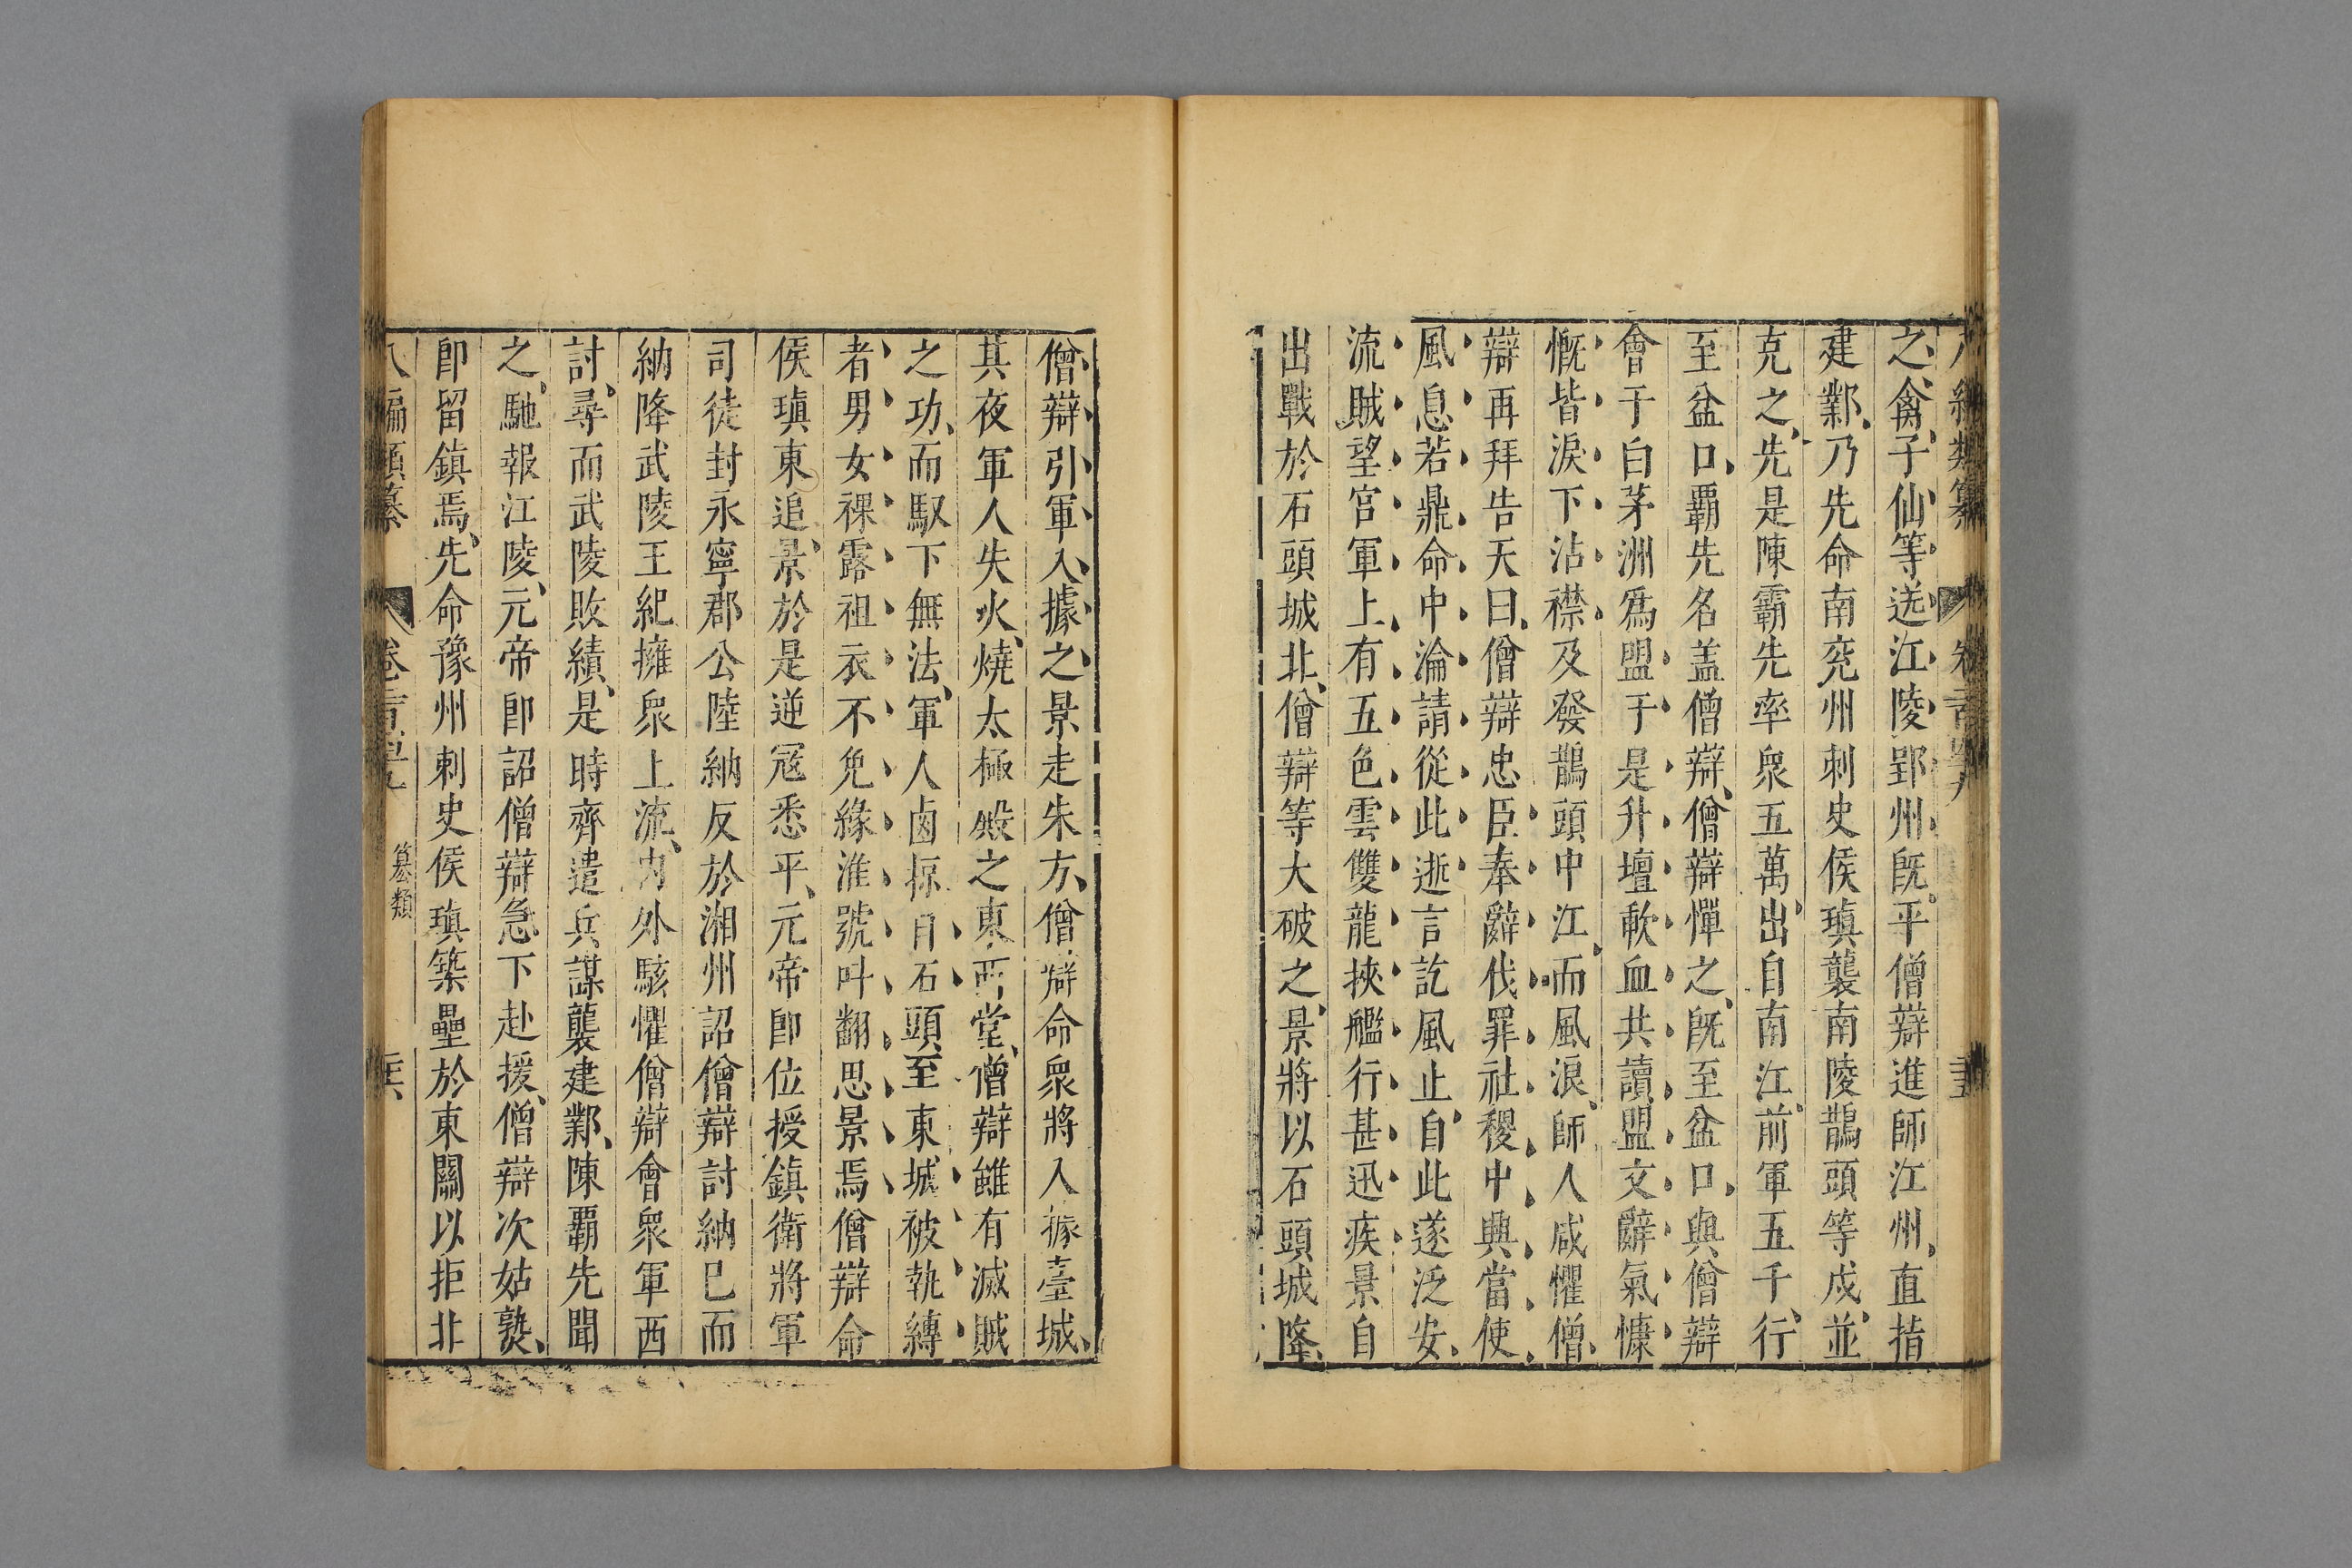 之禽子仙等送江陵郢州既平僧辯進師江州直指
建鄴乃先命南兖州刺史侯瑱襲南陵鵲頭等戍並
克之先是陳霸先率衆五萬出自南江前軍五千行
至盆口覇先名盖僧辯僧辯憚之既至盆口與僧辯
會于白茅洲爲盟于是升壇歃血共讀盟文辭氣慷
慨皆淚下沾襟及發鵲頭中江而風浪師人咸懼僧
辯再拜告天曰僧辯忠臣奉辭伐罪社稷中興當使
風息若鼎命中淪請從此逝言訖風止自此遂泛安
流賊望官軍上有五色雲雙龍挾艦行甚迅疾景自
出戰於石頭城北僧辯等大破之景將以石頭城降
僧辯引軍入據之景走朱方僧辯命衆將入據臺城
其夜軍人失火燒太極殿之東西堂僧辯雖有滅賊
之功而馭下無法軍人鹵掠自石頭至東城被執縛
者男女裸露袒衣不免緣淮號呌翻思景焉僧辯命
侯瑱東追景於是逆冦悉平元帝卽位授鎮衛將軍
司徒封永寧郡公陸納反於湘州詔僧辯討納已而
納降武陵王紀擁衆上流内外駭懼僧辯會衆軍西
討尋而武陵敗績是時齊遣兵謀襲建鄴陳覇先聞
之馳報江陵元帝卽詔僧辯急下赴援僧辯次姑孰
卽留鎮焉先命豫州刺史侯瑱築壘於東關以拒北
八編類纂 卷 纂類